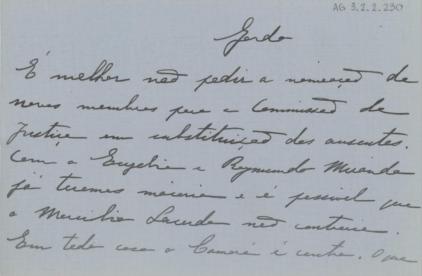 AG 3.2.2.230
Gordo
É melhor não pedir a nomeação de
novos membros para a Commissão de
Justiça em substituição dos ausentes.
Com o Eugenio e Raymundo Miranda
já teremos maioria e é possivel que
o Marcilio Lacerda não contrarie.
Em todo caso o Canaré é contra. O que